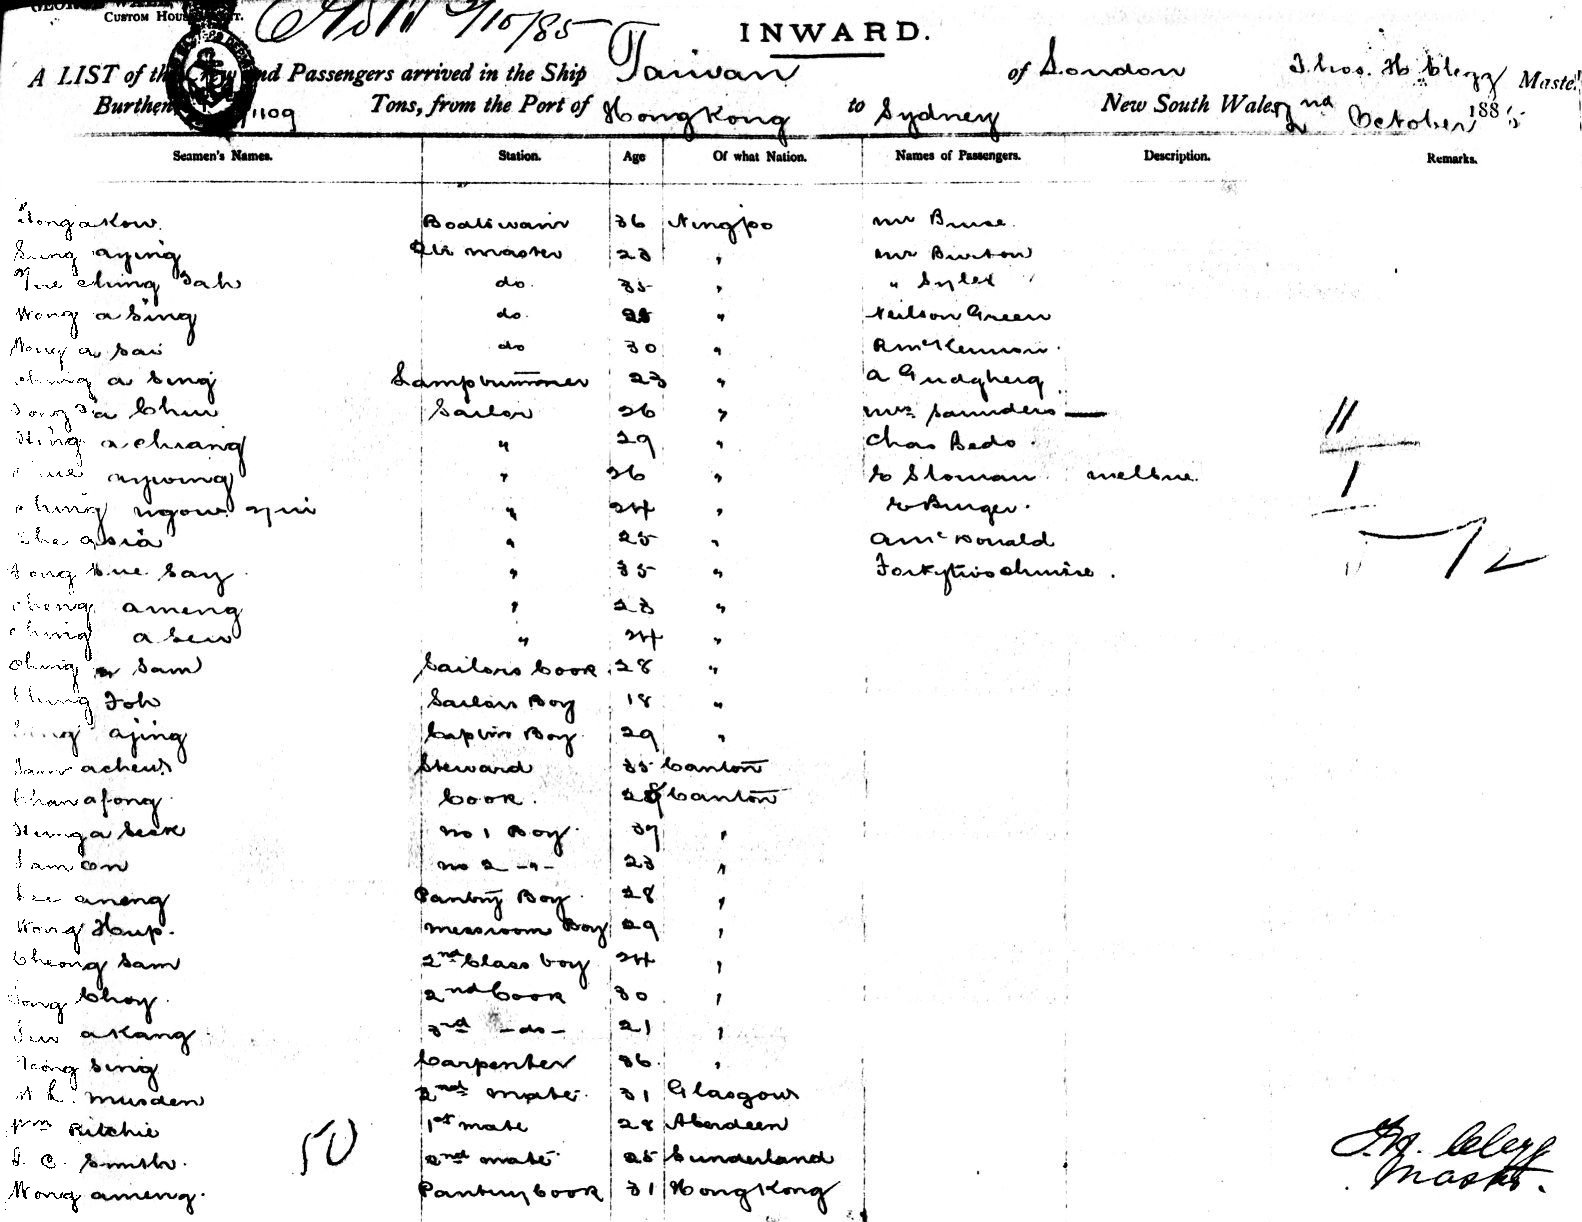 CUSTOM HOUSE
2/10/85
INWARD.
A LIST of the Crew and Passengers arrived in the Ship Taiwan of London Thos. H Clegg Master
Burthen 1109 Tons, from the Port of Hong Kong to Sydney New South Wales 2nd October 1885
Seamen's Names. Station. Age Of what Nation. Names of Passengers. Description. Remarks.
Boatswain 36 Ningpo Mr Bruce
aying Qtr master 23 " Mr Burton
ching Tah do. 35 " "
Wong a Sing do. " Neilson Green
a Sai do 30 " R McKennon
a Sing Lamptrimmer 23 "
a Chui Sailor 26 " Mrs Saunders —
a chiang " 29 " Chas Bedo 11
" 26 " E Sloman Melbne 1
Ching ngow " 24 " E Burger
asia " 25 " A McDonald 72
Tong Say " 35 " Forty two chinese.
ameng " 23 "
Ching a Sew " 24 "
Ching a Sam Sailors Cook 28 "
Ching Foh Sailors Boy 18 "
ajing Captns Boy 29 "
Steward 35 Canton
Chan afong Cook 28 Canton
No 1 Boy 37 "
Sam on No 2 -"- 23 "
Lee aneng Pantry Boy 28 "
Wong Hup. Messroom Boy 29 "
Cheong Sam 2nd Class boy 24 "
Tong Choy 2nd Cook 30 "
akang 3rd -do- 21 "
Sing Carpenter 36 "
Musden 2nd mate 31 Glasgow
Wm Ritchie 1st mate 28 Aberdeen
50
C. Smith. 2nd mate 25 Sunderland
Wong ameng. Pantry Cook 31 Hong Kong
T.H. Clegg
Master.